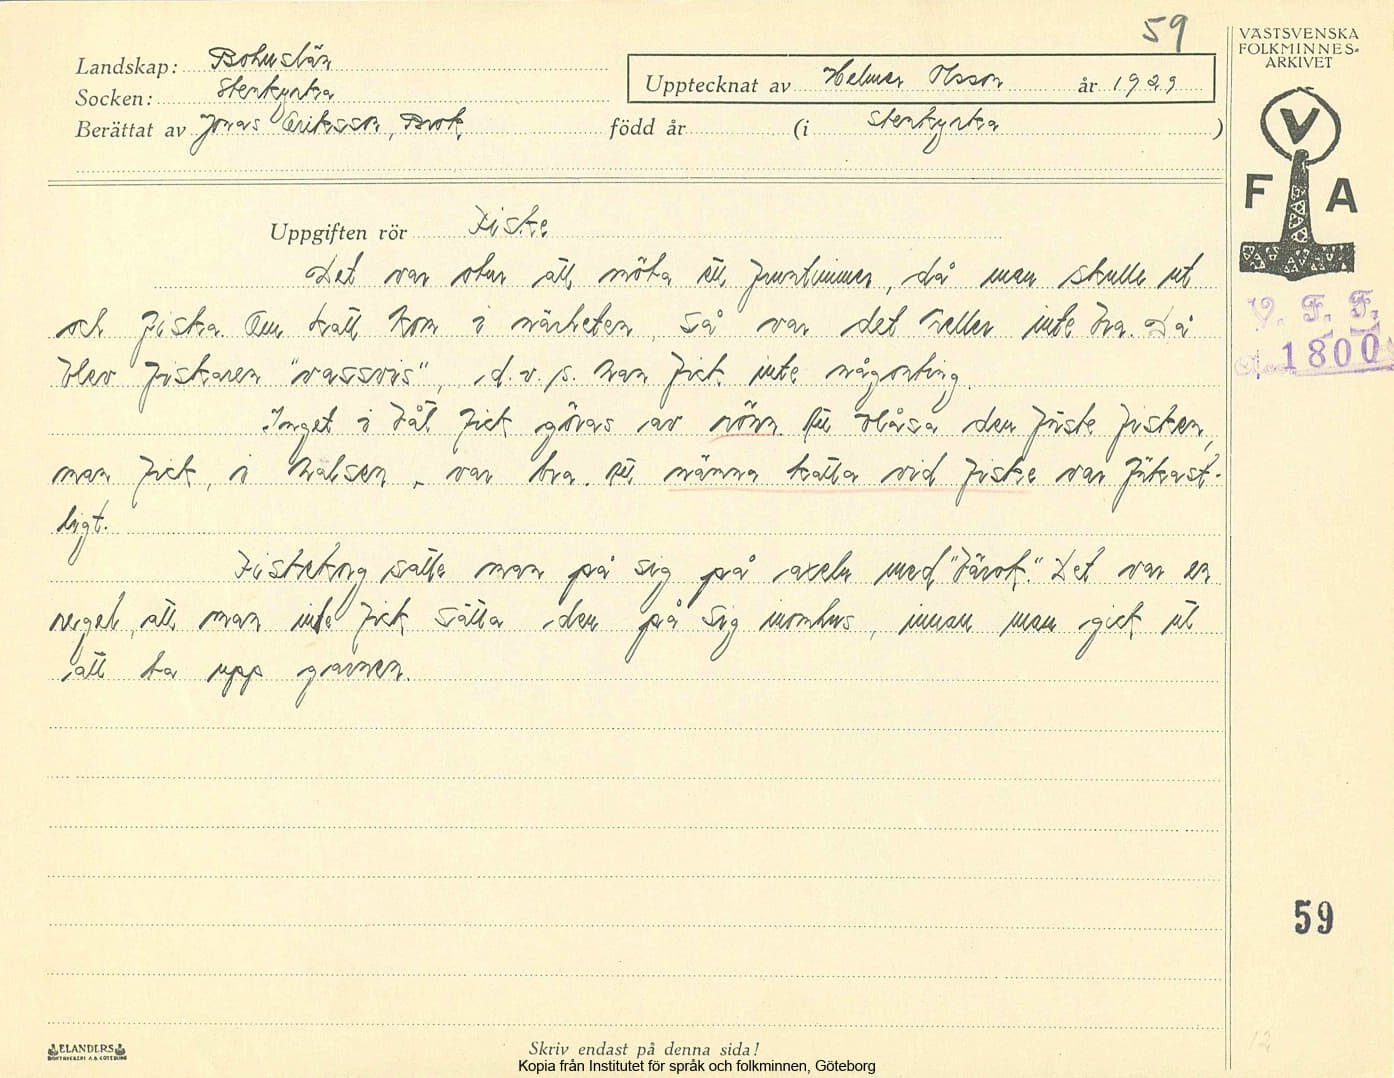 59
VÄSTSVENSKA
FOLKMINNES-
ARKIVET
Landskap: Bohuslän
Socken: Stenkyrka
Upptecknat av Helmer Olsson år 1929
Berättat av Jonas Eriksson, Brok född år (i Stenkyrka )
V
F A
V. F. F.
1800
Uppgiften rör Fiske
Det var otur att möta ett fruntimmer, då man skulle ut
och fiska. Om katt kom i närheten, så var det heller inte bra. Då
blev fiskaren "vassvis", d.v.s. han fick inte någonting.
Inget i båt fick göras av rönn. Att blåsa den förste fisken,
man fick, i halsen, var bra. Att nämna katta vid fiske var förkast-
ligt.
Fiskekorg satte man på sig på axeln med "bärok". Det var en
regel, att man inte fick sätta den på sig inomhus, innan man gick ut
att ta upp garnen.
59
12
ELANDERS
BOKTRYCKERI A.B. GÖTEBORG
Skriv endast på denna sida!
Kopia från Institutet för språk och folkminnen, Göteborg